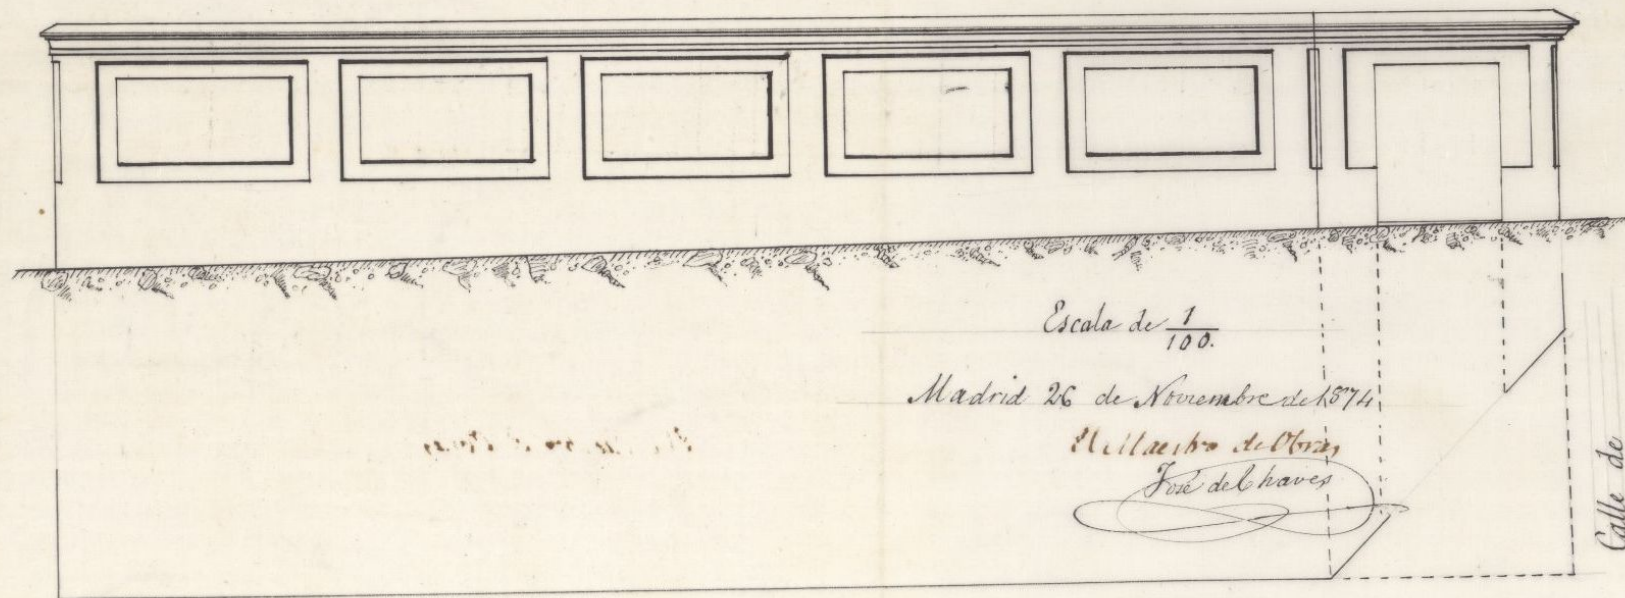 Escala de 1/100.
Madrid 26 de Noviembre de 1874
El Maestro de Obras
José de Chaves
Calle de